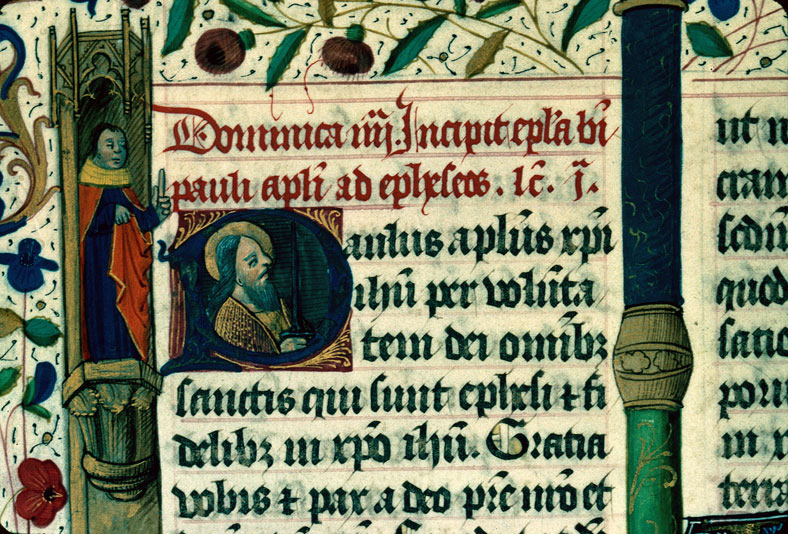 Dominica iiij. Incipit epl̃a bi̇
pauli apl̃i ad ephe̅seos. lc̃. j̃.
Paulus apl̃us xp̃i
ihũ per volũta
tem dei omĩbꝫ
sanctis qui sunt ephesi ⁊ fi
delibꝫ in xp̃o ihũ. Gratia
vobis ⁊ pax a deo pr̃e nr̃o et
ut
quod
in
terra